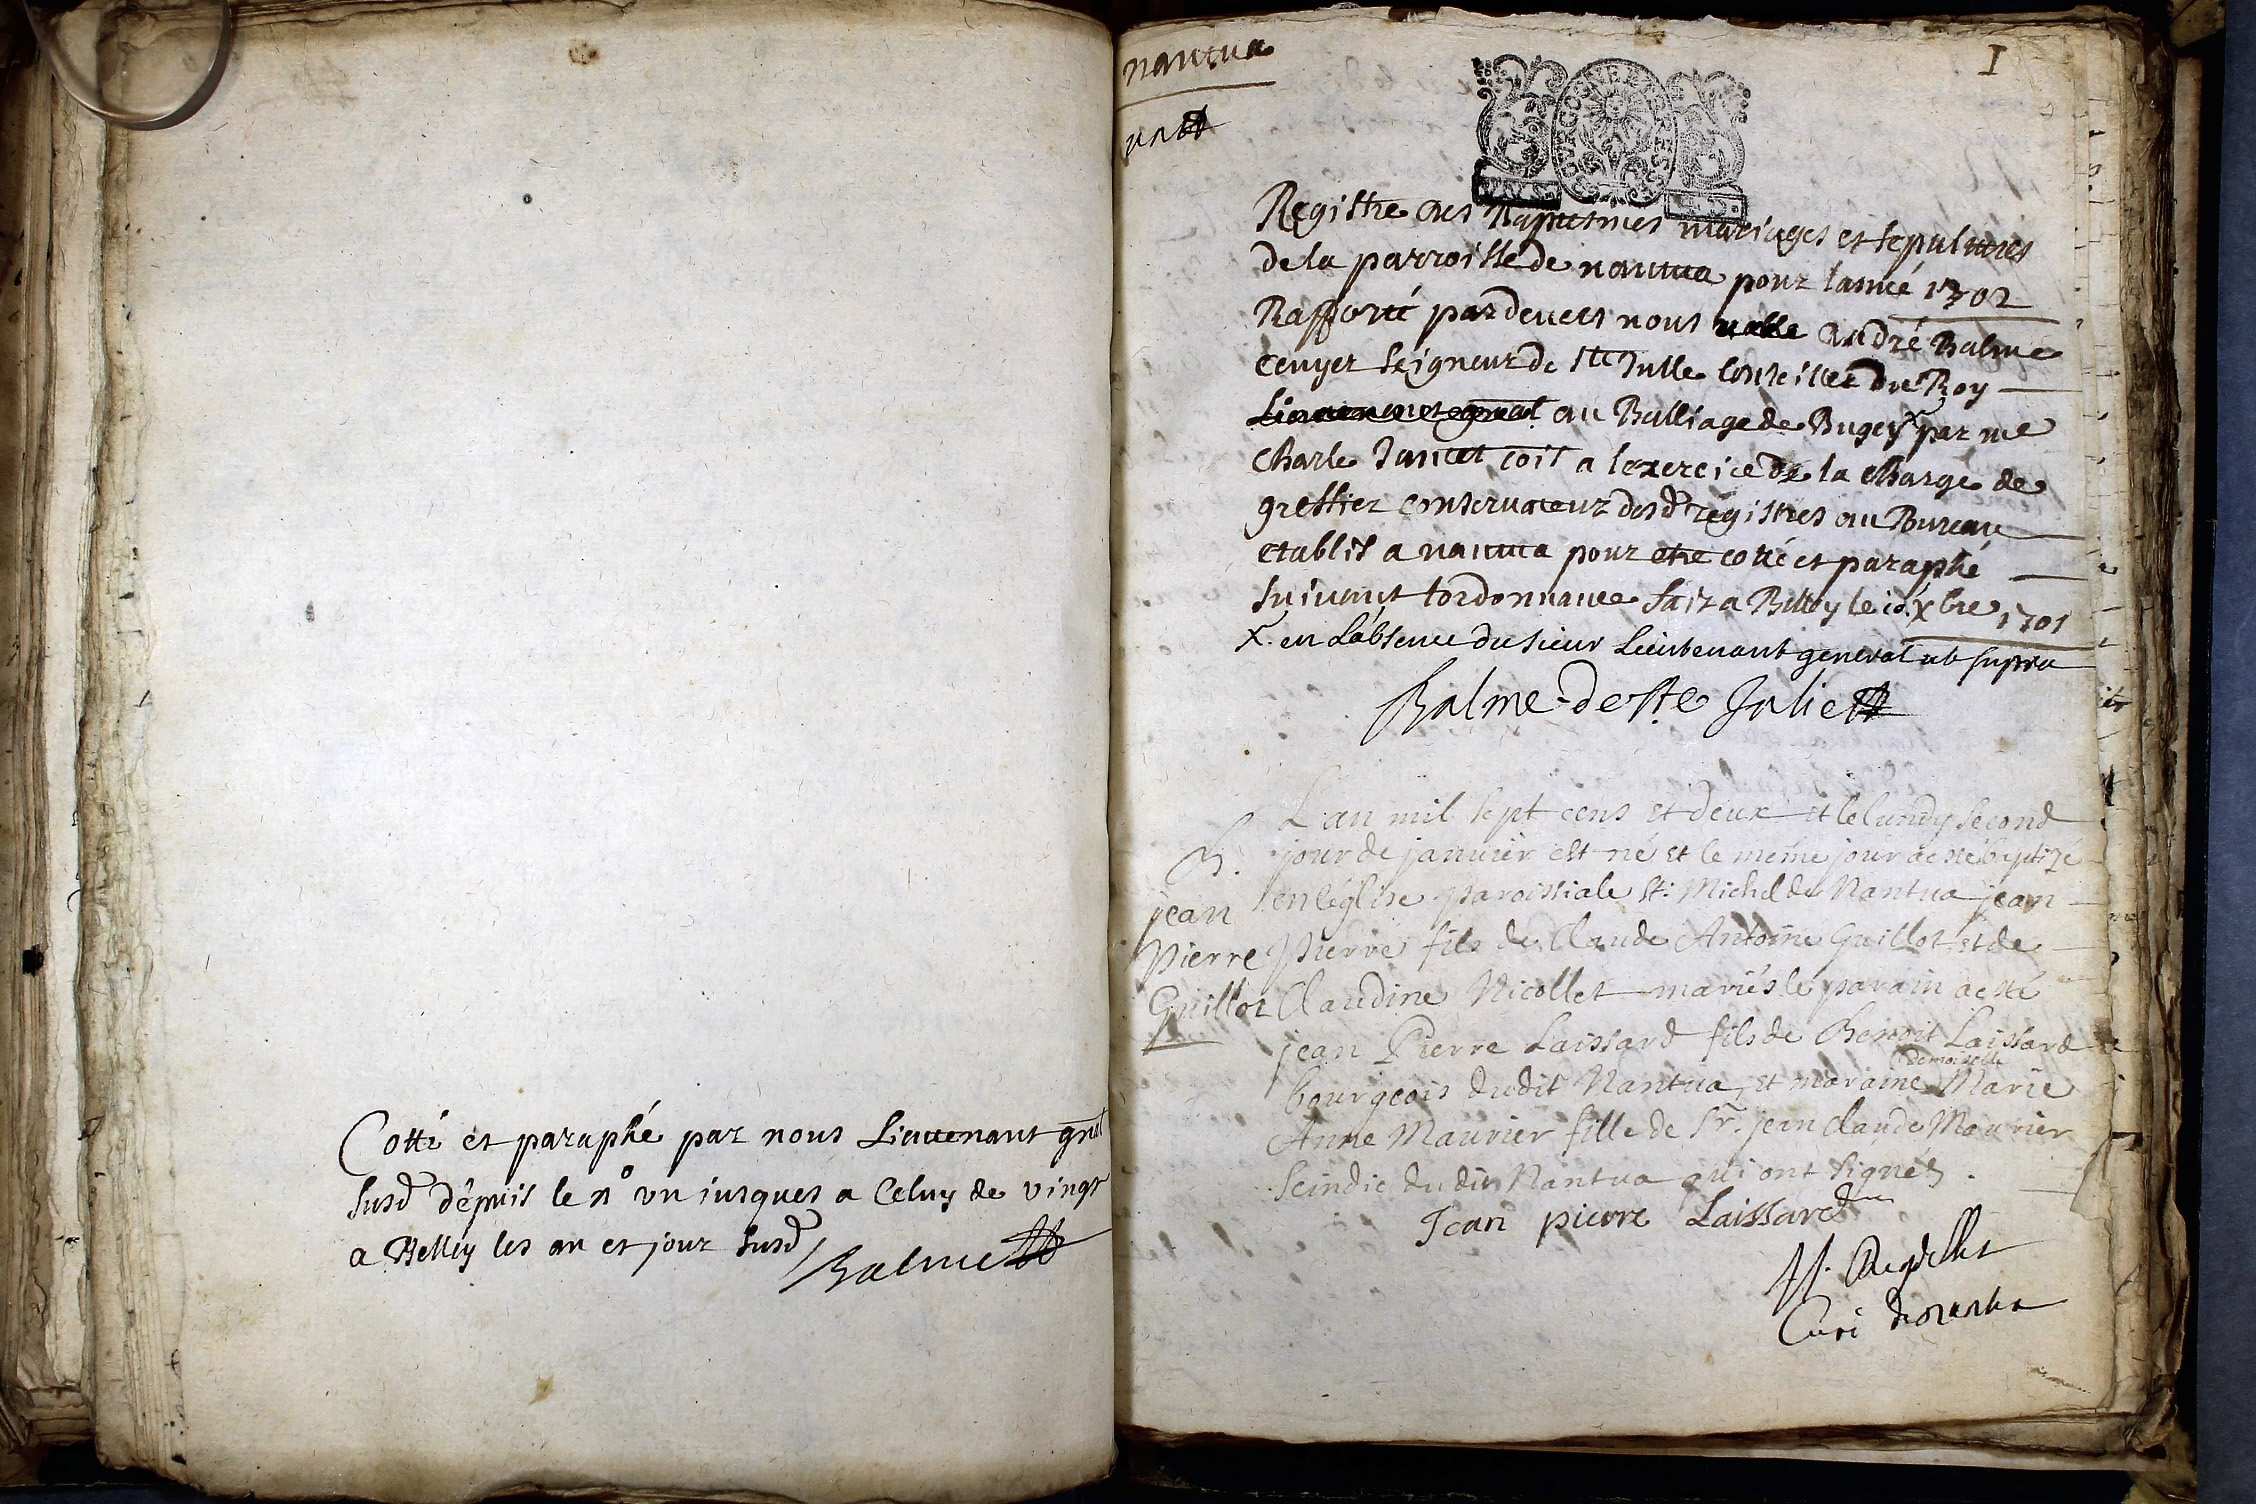 Cotté et paraphé par nous Lieutenant gnal
susd depuis le n° un iusques a Celuy de vingt
a Belley les an et jour susd
Balme
nantua
un
1
Registre des Baptesmes mariages et sepultures
de la parroisse de nantua pour lanné 1702
Rapporté pardevers nous noble André Balme
ecuyer seigneur de Ste Julle conseiller du Roy
Lieutenant gnal au Balliage de Bugey x par me
Charle Jantet cõis a lexercice de la charge de
greffier conservateur desd registres au Bureau
etablit a nantua pour etre cotté et paraphé
suivant lordonnance fait a Belley le xbre 1701
x. en Labsence du sieur Lieutenant general ut supra
Balme de Ste Julie
L'an mil sept cens et deux et le lundy second
jour de janvier est né et le même jour a esté baptizé
en l'église paroissiale St: Michel de Nantua jean
Pierre fils de Claude Antoine Guillot et de
Claudine Nicollet mariés le parain a esté
jean Pierre Laissard fils de Benoit Laissard
bourgeois dudit Nantua, et maraine demoiselle Marie
Anne Maurier fille de Sr. jean Claude Maurier
Scindic dudit Nantua qui ont signés.
B.
jean
Pierre
Guillot
Jean pierre Laissard
Curé de nantua